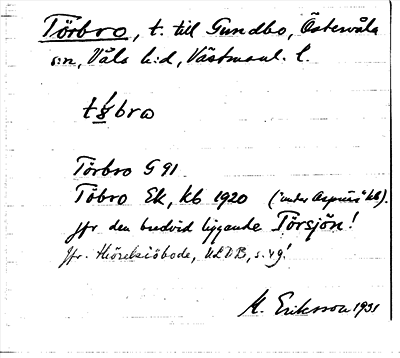 Törbro, t. till Gundbo, Östervåla
s:n, Våla h:d, Västmanl. l.
Törbro G 91
Töbro Ek, kb 1920 ("under Aspnäs" kb).
jfr den bredvid liggande Törsjön!
jfr. ULDB, s. v g!
M. Eriksson 1931